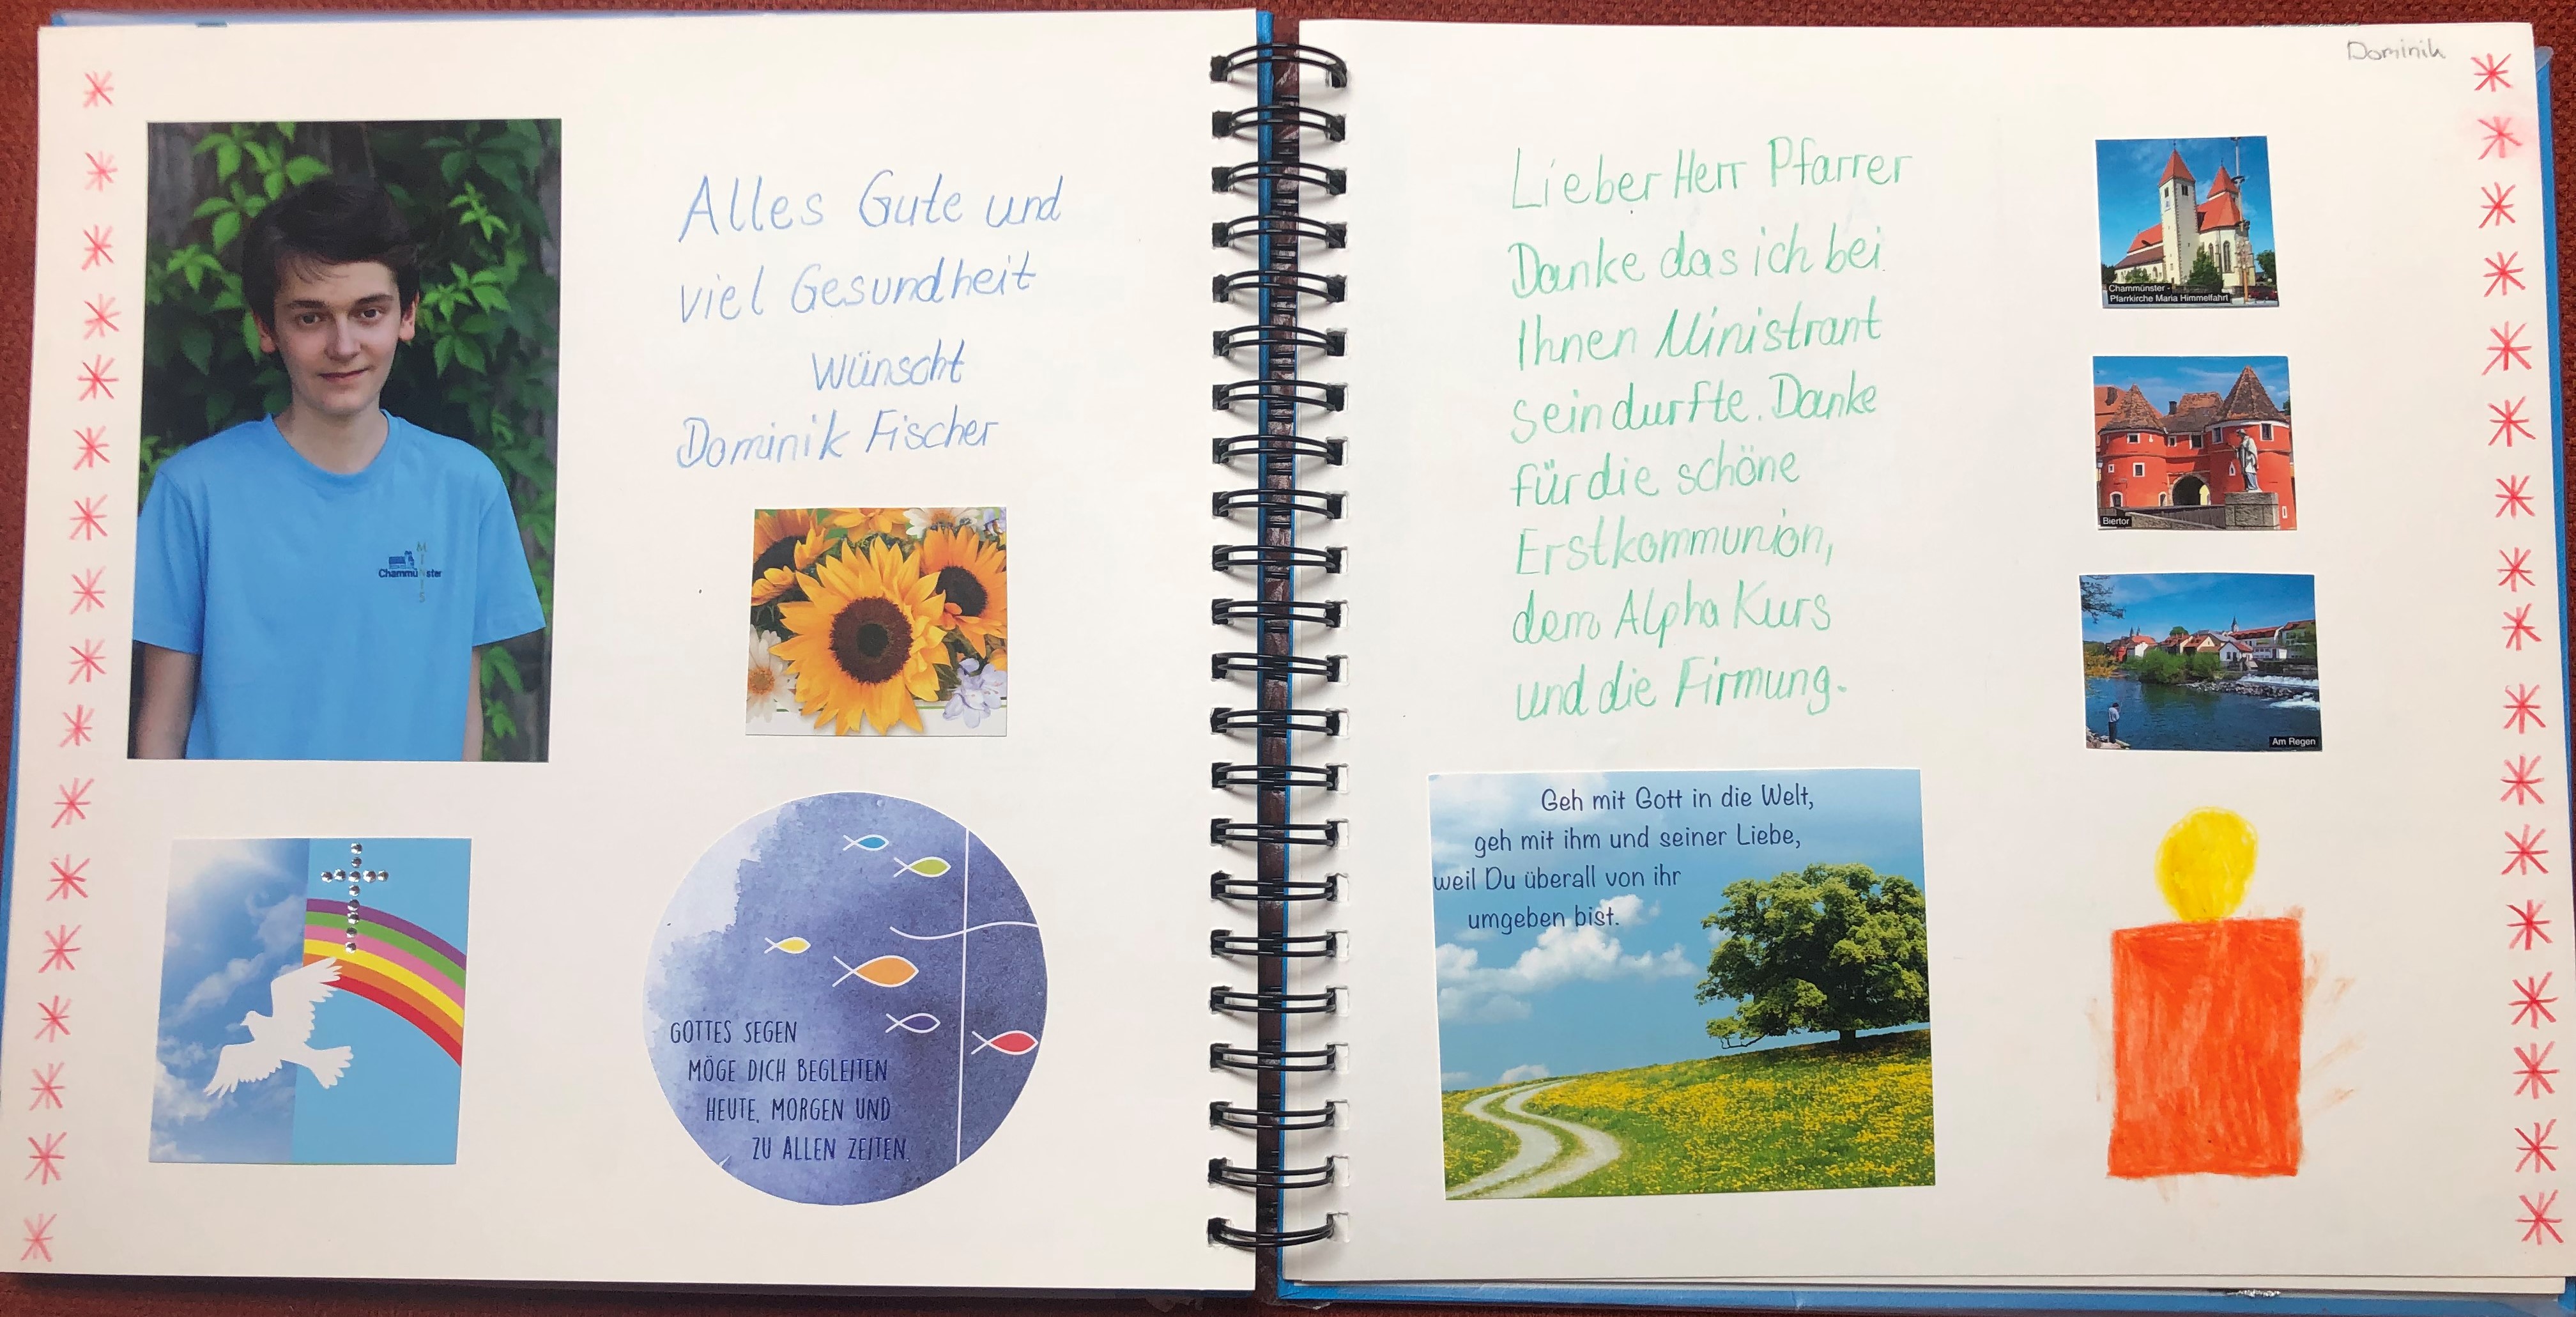 Alles Gute und
viel Gesundheit
Wünscht
Dominik Fischer
MINIS
Chammünster
GOTTES SEGEN
MÖGE DICH BEGLEITEN
HEUTE, MORGEN UND
ZU ALLEN ZEITEN.
Dominik
Lieber Herr Pfarrer
Danke das ich bei
Ihnen Ministrant
sein durfte. Danke
für die schöne
Erstkommunion,
dem Alpha Kurs
und die Firmung.
Chammünster -
Pfarrkirche Maria Himmelfahrt
Biertor
Am Regen
Geh mit Gott in die Welt,
geh mit ihm und seiner Liebe,
weil Du überall von ihr
umgeben bist.